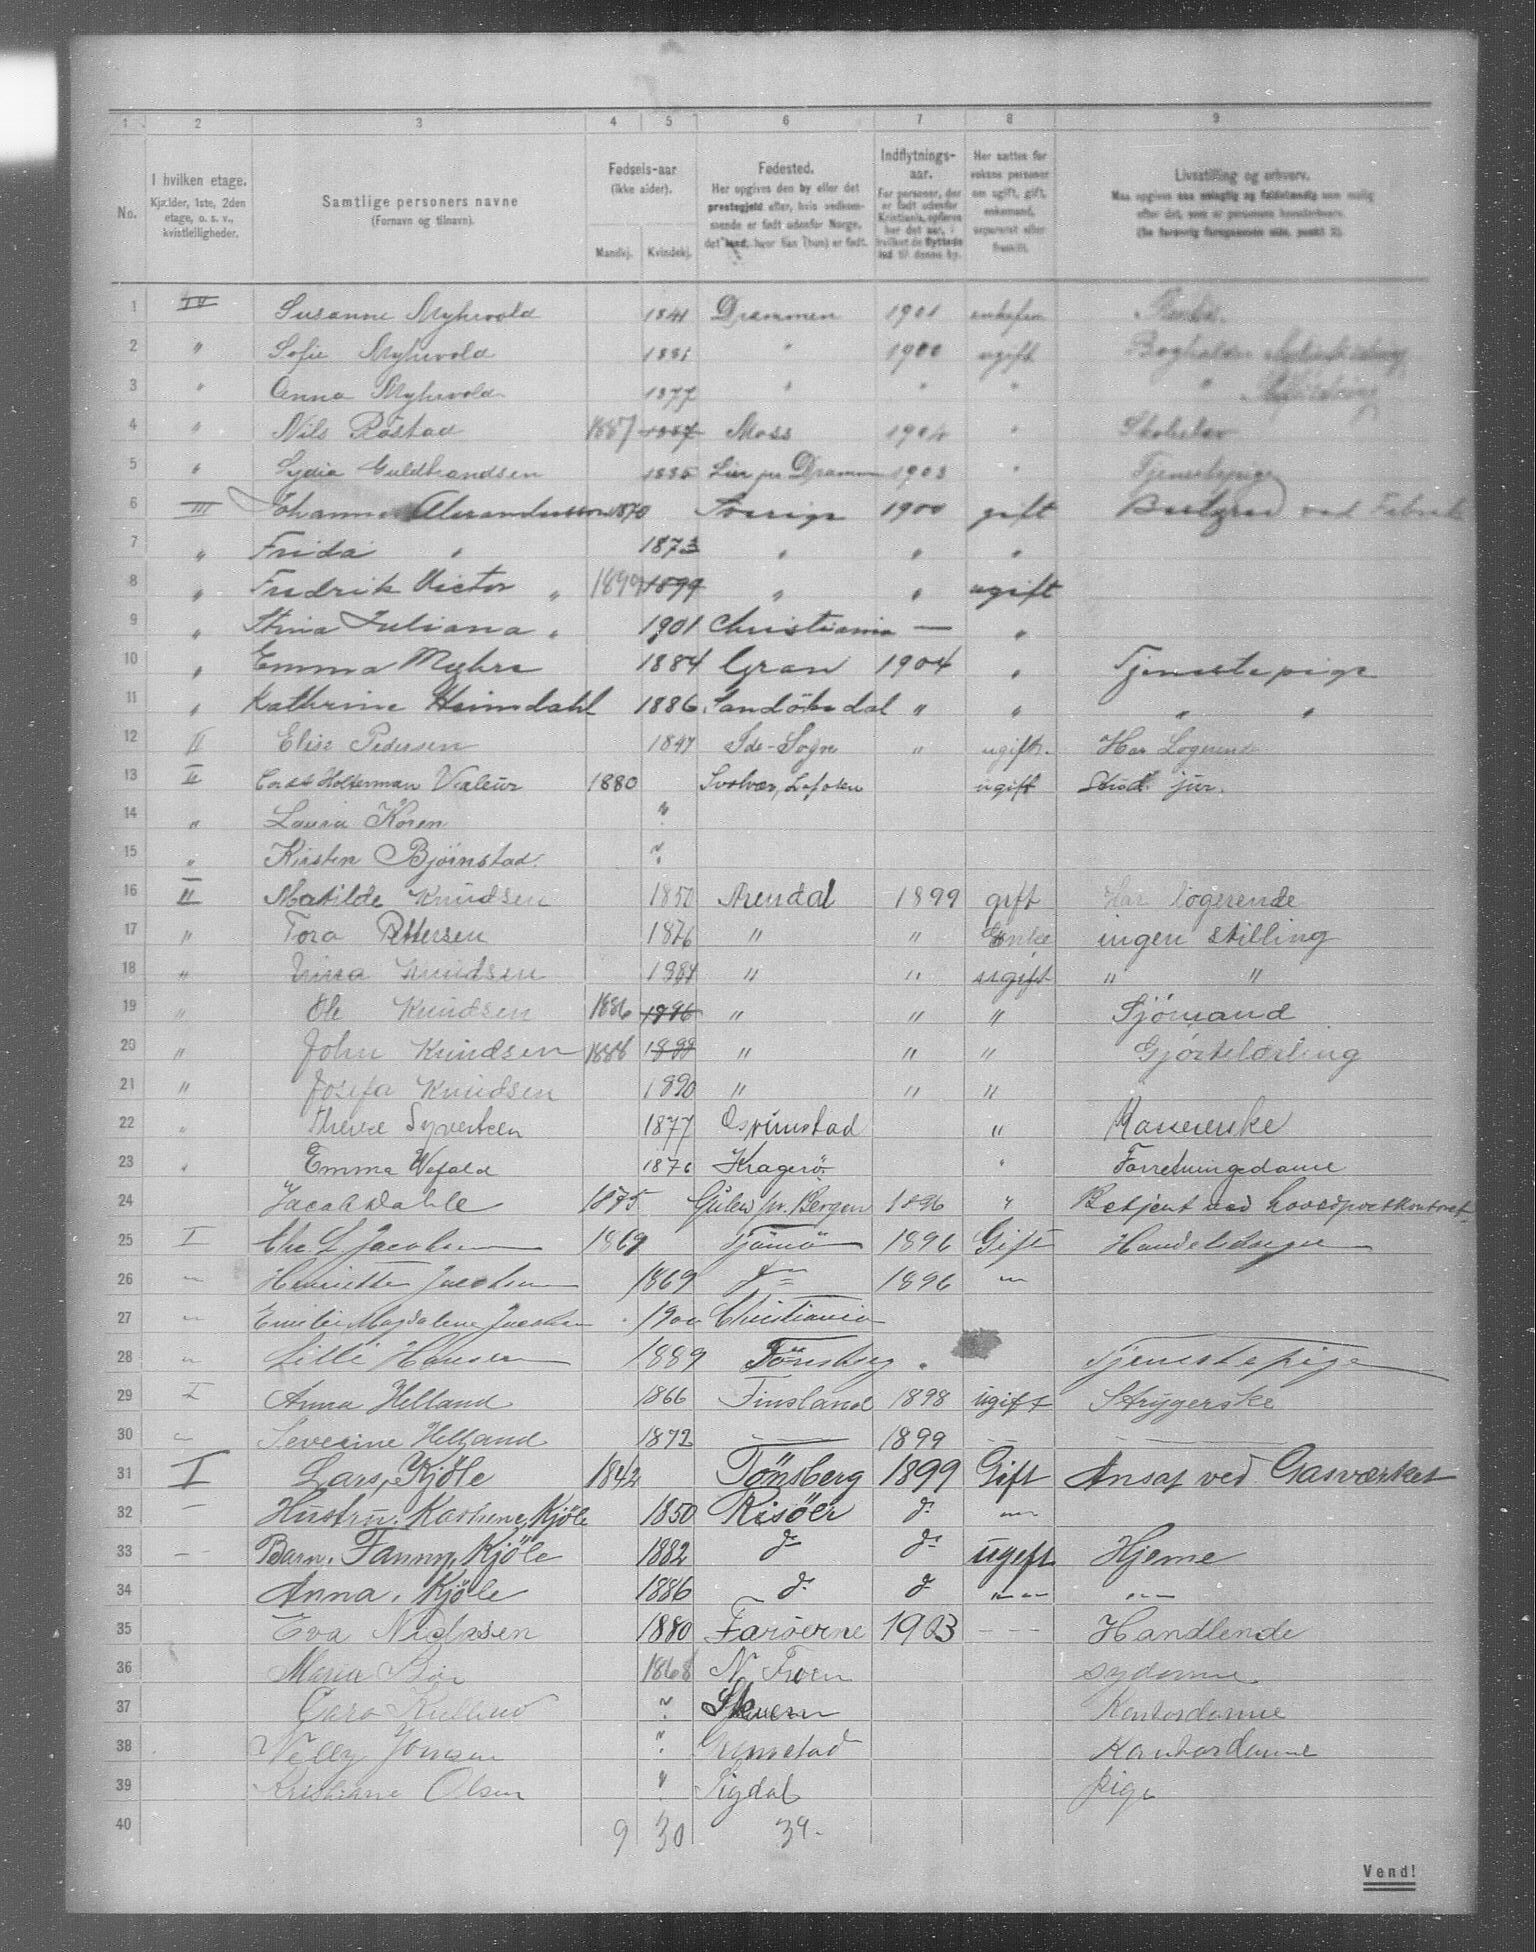 1 2 3 4 5 6 7 8 9
No.
I hvilken etage.
Kjælder, 1ste, 2den
etage, o. s. v.,
kvistleiligheder.
Samtlige personers navne
(Fornavn og tilnavn).
Fødsels-aar
(ikke alder).
Mandkj. Kvindekj.
Fødested.
Her opgives den by eller det
prestegjeld eller, hvis vedkom-
mende er født udenfor Norge,
det land, hvor han (hun) er født.
Indflytnings-
aar.
For personer, der
er født udenfor
Kristiania, opføres
her det aar, i
hvilket de flyttede
ind til denne by.
Her sættes for
voksne personer
om ugift, gift,
enkemand,
separeret eller
fraskilt.
Livsstilling og erhverv.
1 IV Susanne Myhrvold 1841 Drammen 1901
2 " Sofie Myhrvold 1881 " 1900 ugift
3 " Anna Myhrvold 1877 " " "
4 " Nils Röstad 1887 1887 Moss 1904 "
5 " Lydia Guldbrandsen 1885 Lier pr Drammen 1903 " Tjenestepige
6 III Johannes Alexandersson 1870 Sverige 1900 gift
7 " Frida " 1873 " " "
8 " Fredrik Victor " 1899 1899 " " ugift
9 " Stina Juliana " 1901 Christiania — "
10 " Emma Myhre 1884 Gran 1904 " Tjenestepige
11 " Kathrine Heimdahl 1886 " " " "
12 II Elise Pedersen 1847 Ide-Sogn " ugift. Har Logerende
13 II Holterman Valeur 1880 Svolvær, Lofoten ugift Stud. jur.
14 " Laura Koren "
15 " Kirsten Bjørnstad. "
16 II Matilde Knudsen 1850 Arendal 1899 gift Har logerende
17 " Tora Pettersen 1876 " " Enke ingen stilling
18 " Knudsen 1884 " " ugift " "
19 " Ole Knudsen 1886 1886 " " " Sjömand
20 " John Knudsen 1888 1888 " " " Gjørtelærling
21 " Josefa Knudsen 1890 " " "
22 " Therese Syvertsen 1877 "
23 " Emma Wefald 1876 Kragerö "  Forretningsdame
24 Jacob Dahle 1875 Gulen pr. Bergen 1896 " Betjent ved hovedpostkontoret
25 I Chr. L Jacobsen 1869 Tjömö 1896 Gift
26 " Henriette Jacobsen 1869 " 1896 "
27 " Emilie Magdalene Jacobsen 1900 Christiania
28 " Lilli Hansen 1889 Tönsberg Tjenestepige
29 I Anna Helland 1866 Finsland 1898 ugift Strygerske
30 " Severine Helland 1872 — 1899 — —
31 I Lars Kjöle 1842 Tönsberg 1899 Gift Ansat ved Gasværket
32 — Hustru. Kathrine Kjöle 1850 Risöer d: "
33 — Barn. Fanny Kjöle 1882 d: d: ugift Hjeme
34 Anna. Kjöle 1886 d: d: " "
35 Eva Niclasen 1880 Farøerne 1903 --- Handlende
36 Maria 1868 N. Froen sydame
37 " Kontordame
38 Nelly Jensen " Grimstad Kontordame
39 Kristiane Olsen " Sigdal pige
40 9 30 39.
Vend!